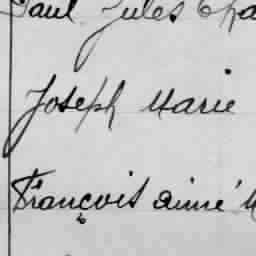 Paul Jules Cha
Joseph Marie
François aimé